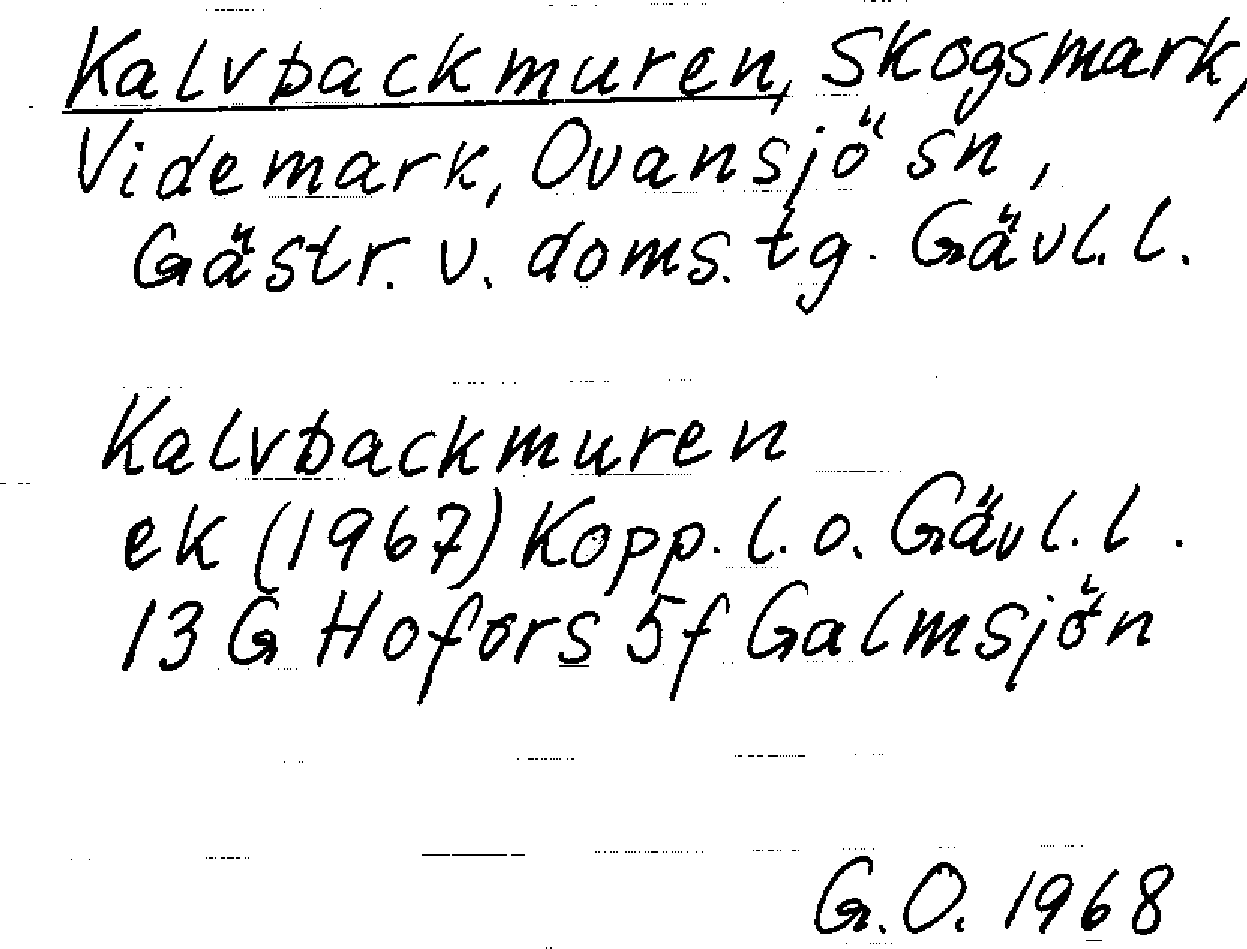 Kalvbackmuren, Skogsmark,
Videmark, Ovansjö sn,
Gästr. v. doms. tg. Gävl. l.
Kalvbackmuren
ek (1967) Kopp. l. o. Gävl. l.
13 G Hofors 5f Galmsjön
G. O. 1968